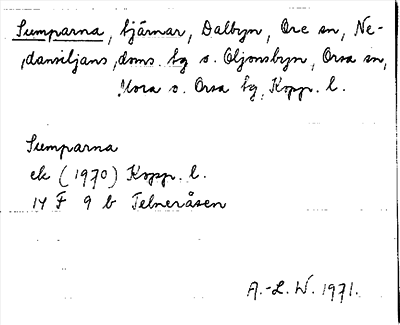 Sumparna, tjärnar, Dalbyn, Ore sn, Ne-
dansiljans doms. tg o. Oljonsbyn, Orsa sn,
Mora o. Orsa tg, Kopp. l.
Sumparna
ek (1970) Kopp. l.
14 F 9 b Telneråsen
A.-L. W. 1971.